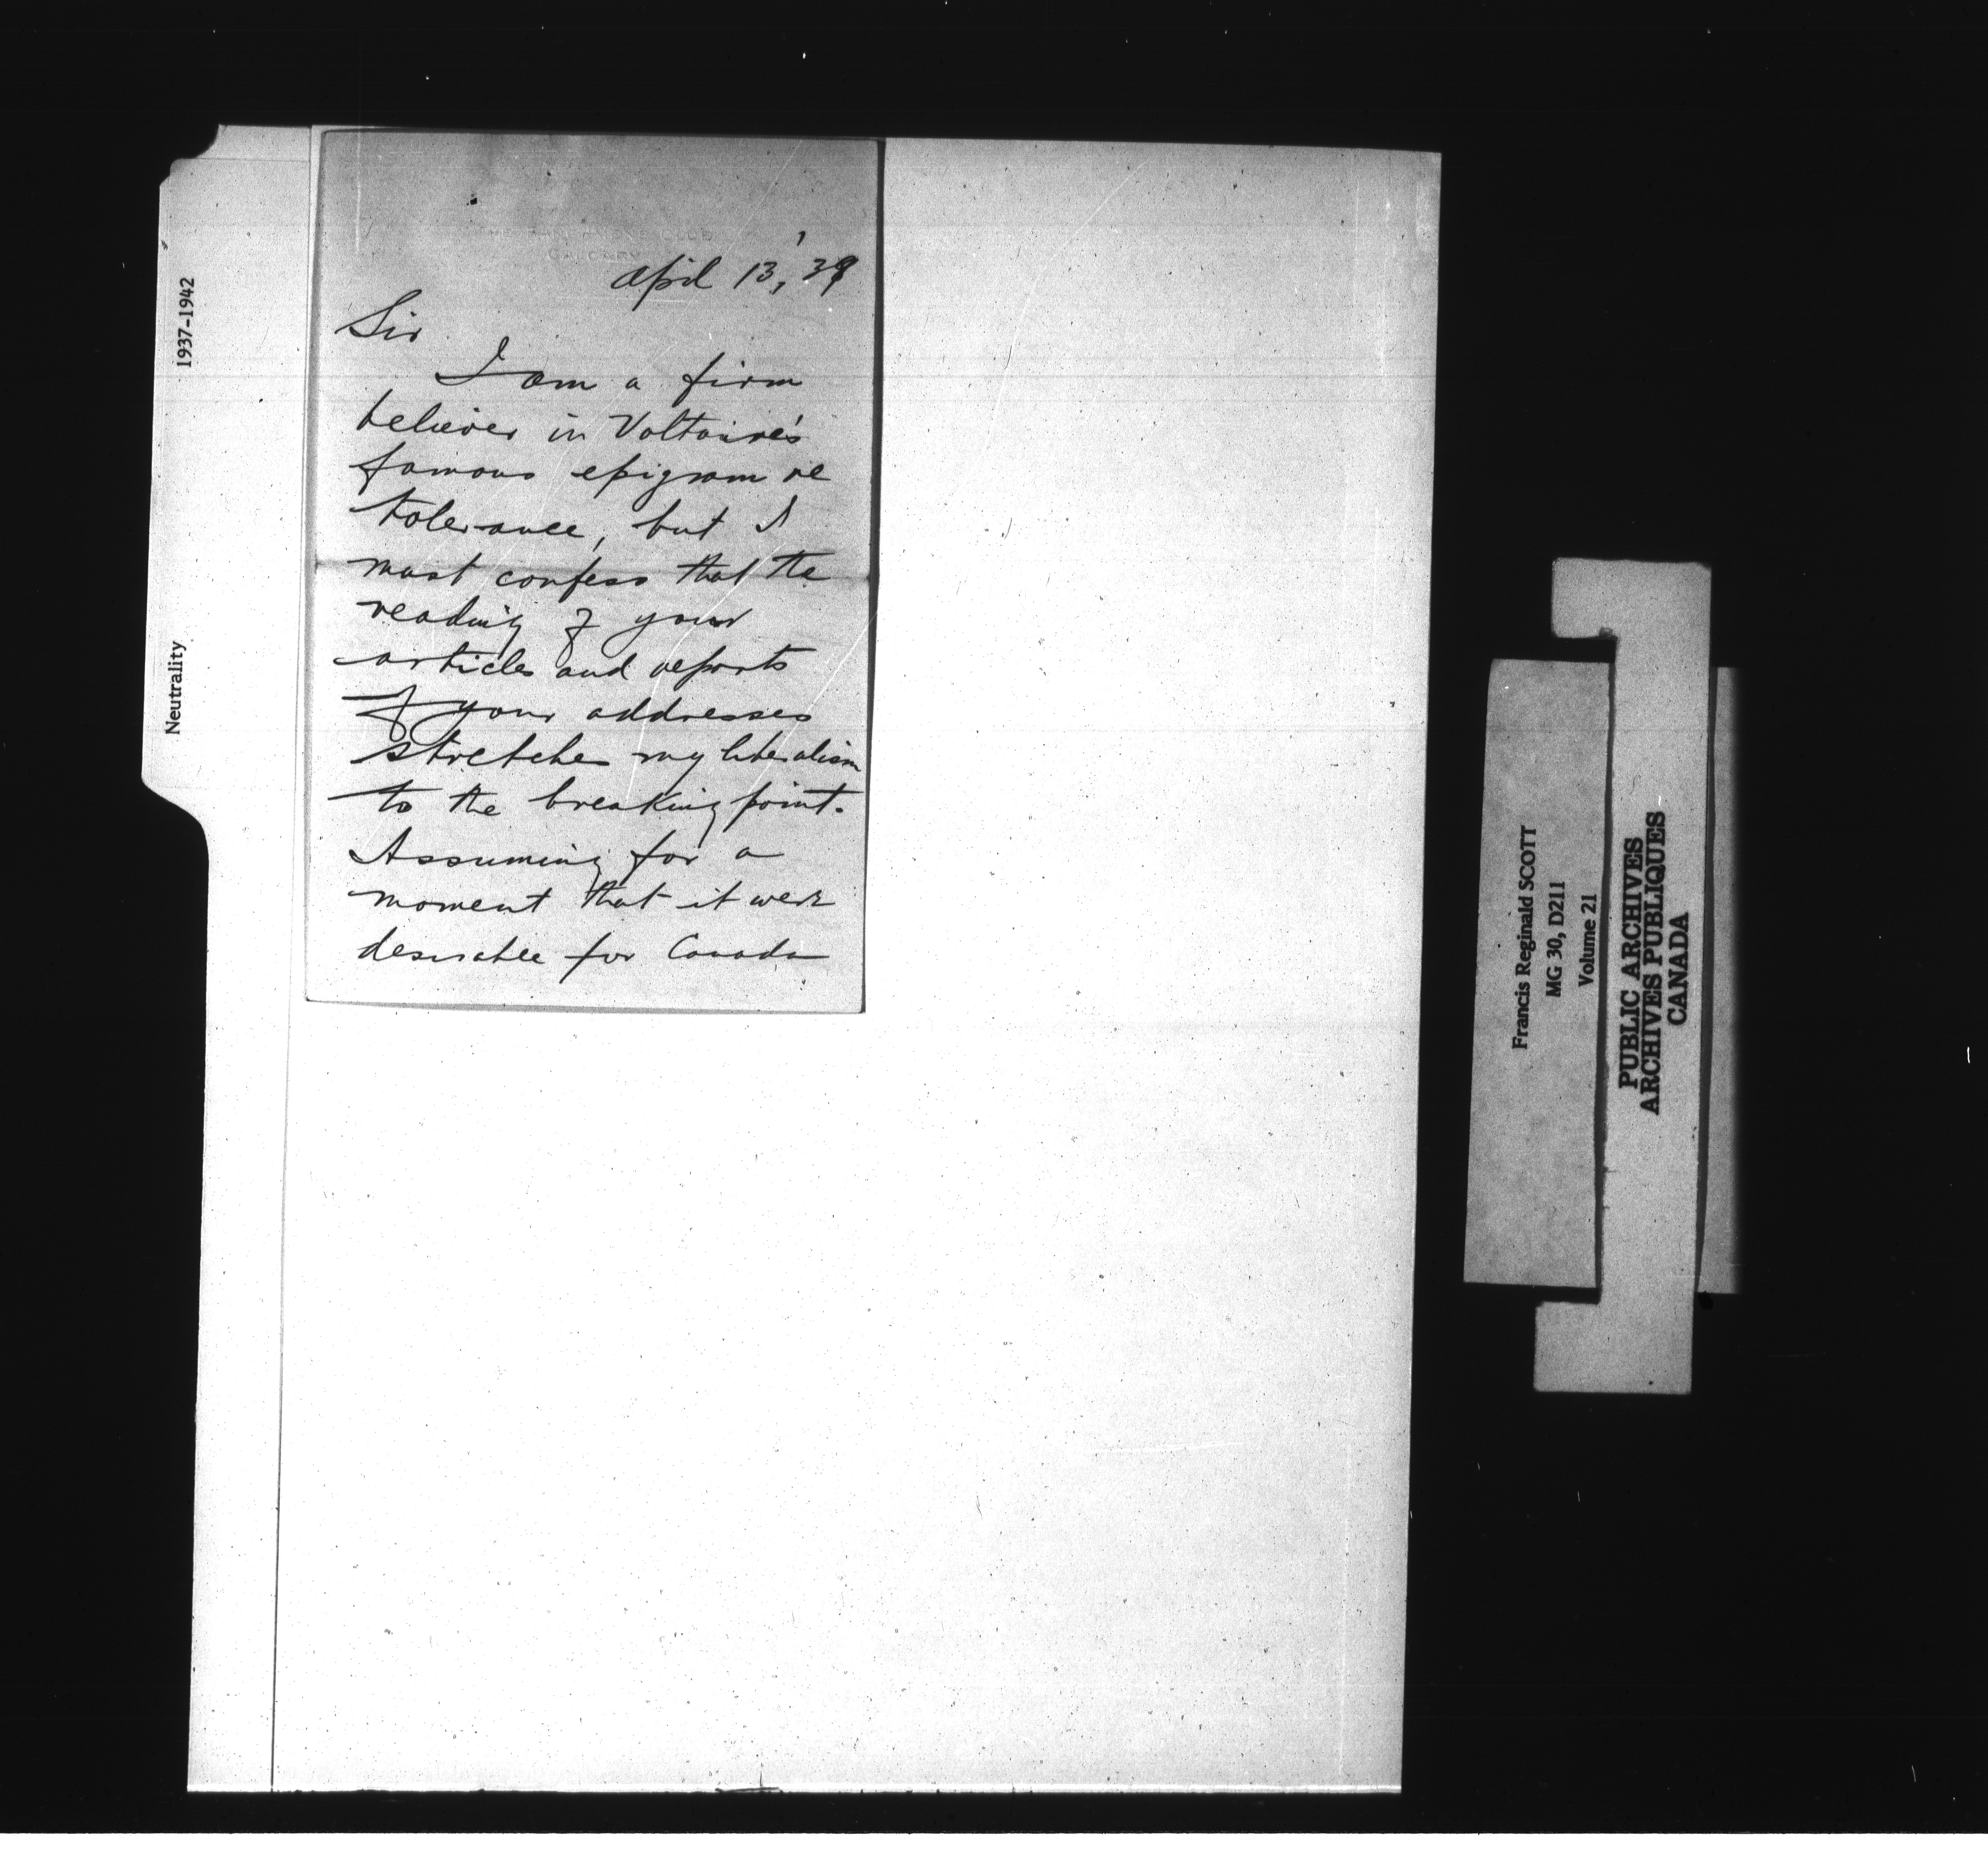 Neutrality 1937-1942
CLUB
CALGARY
April 13, '39
Sir
I am a firm
believer in Voltaire's
famous epigram re
tolerance, but I
must confess that the
reading of your
articles and reports
of your addresses
stretches my liberalism
to the breaking point.
Assuming for a
moment that it were
desirable for Canada
Francis Reginald SCOTT
MG 30, D211
Volume 21
PUBLIC ARCHIVES
ARCHIVES PUBLIQUES
CANADA